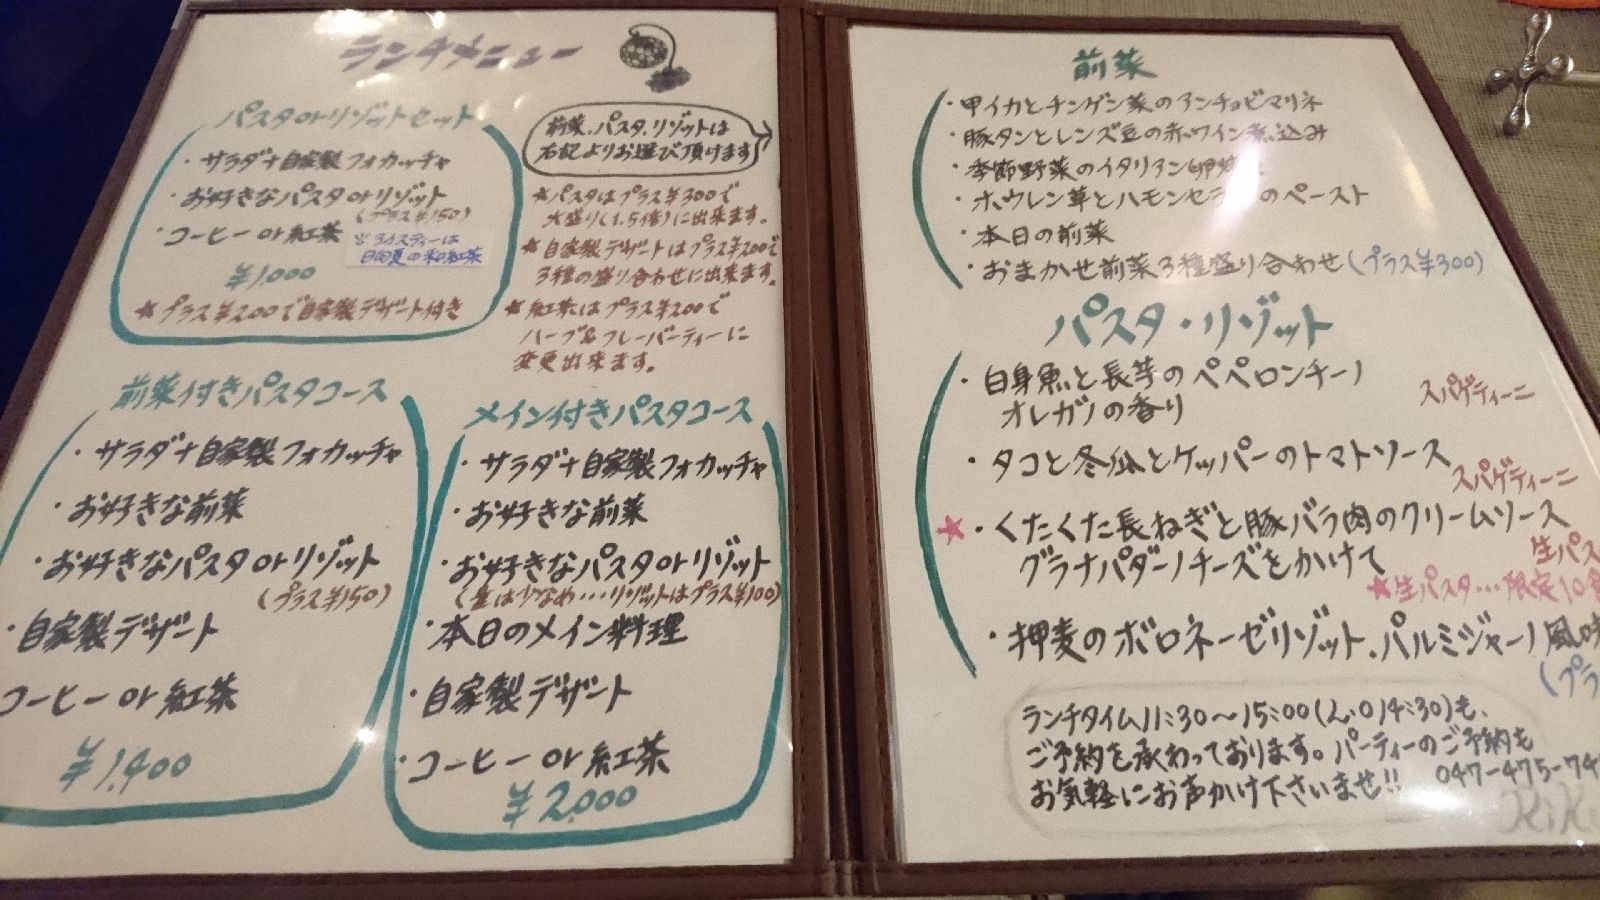 ランチメニュー
パスタorリゾットセット
・サラダ+自家製フォカッチャ
・お好きなパスタorリゾット
(プラス¥150)
・コーヒーor紅茶
※アイスティーは
日向夏の和紅茶
¥1,000
★プラス¥200で自家製デザート付き
前菜、パスタ、リゾットは
右記よりお選び頂けます
★パスタはプラス¥300で
大盛り(1.5倍)に出来ます。
★自家製デザートはプラス¥200で
3種の盛り合わせに出来ます。
★紅茶はプラス¥200で
ハーブ&フレーバーティーに
変更出来ます。
前菜付きパスタコース
・サラダ+自家製フォカッチャ
・お好きな前菜
・お好きなパスタorリゾット
(プラス¥150)
・自家製デザート
コーヒーor紅茶
¥1,400
メイン付きパスタコース
・サラダ+自家製フォカッチャ
・お好きな前菜
・お好きなパスタorリゾット
(量は少なめ…リゾットはプラス¥100)
・本日のメイン料理
・自家製デザート
・コーヒーor紅茶
¥2,000
前菜
・甲イカとチンゲン菜のアンチョビマリネ
・豚タンとレンズ豆の赤ワイン煮込み
・季節野菜のイタリアン卵焼
・ホウレン草とハモンセラ のペースト
・本日の前菜
・おまかせ前菜3種盛り合わせ(プラス¥300)
パスタ・リゾット
・白身魚と長芋のペペロンチーノ
オレガノの香り
スパゲティーニ
・タコと冬瓜とケッパーのトマトソース
スパゲティーニ
★・くたくた長ねぎと豚バラ肉のクリームソース
グラナパダーノチーズをかけて
生パス
★生パスタ…限定10食
・押麦のボロネーゼリゾット、パルミジャーノ風味
(プラ
ランチタイム11:30〜15:00(L.O14:30)も、
ご予約を承わっております。パーティーのご予約も
お気軽にお声かけ下さいませ!! 047-475-74
KiKi